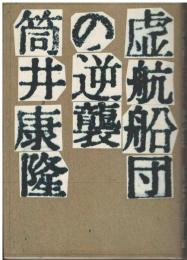 虚航船団
の逆襲
筒井康隆